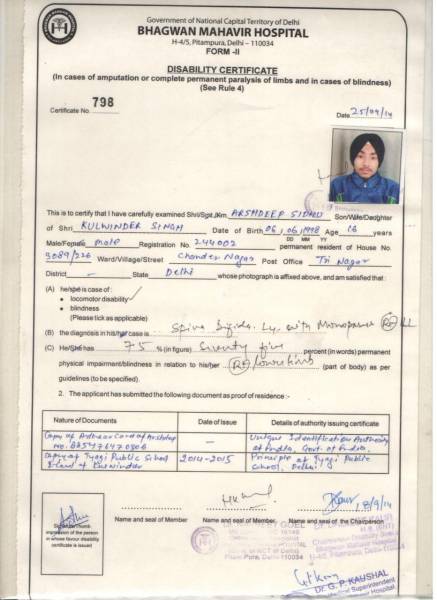 Government of National Capital Territory of Delhi
BHAGWAN MAHAVIR HOSPITAL
H-4/5, Pitampura, Delhi – 110034
FORM -II
DISABILITY CERTIFICATE
(In cases of amputation or complete permanent paralysis of limbs and in cases of blindness)
(See Rule 4)
Certificate No. 798
Date 25/09/14
This is to certify that I have carefully examined Shri/Smt./Km. ARSHDEEP SIDHU Son/Wife/Daughter
of Shri KULWINDER SINGH Date of Birth 06/06/1998 Age 16 years
DD MM YY
Male/Female male Registration No. 244002 permanent resident of House No.
3089/226 Ward/Village/Street Chander Nagar Post Office Tri Nagar
District – State Delhi whose photograph is affixed above, and am satisfied that :
(A) he/she is case of :
• locomotor disability
• blindness
(Please tick as applicable)
(B) the diagnosis in his/her case is Spina Bifida with Monoparesis
(C) He/She has 75 % (in figure) Seventy five percent (in words) permanent
physical impairment/blindness in relation to his/her lower limb (part of body) as per
guidelines (to be specified).
2. The applicant has submitted the following document as proof of residence :-
Nature of Documents Date of Issue Details of authority issuing certificate
Copy of Adhaar Card of Arshdeep — Unique Identification Authority
No. of India, Govt. of India.
Copy of Tyagi Public School 2014-2015 Principle of Tyagi Public
School, Delhi.
18/9/14
Signature/Thumb
impression of the person
in whose favour disability
certificate is issued
Name and seal of Member
Name and seal of Member
Name and seal of the Chairperson
GOEL
Pitam Pura, Delhi
Dr. G. P. KAUSHAL
Medical Superintendent
Mahavir Hospital